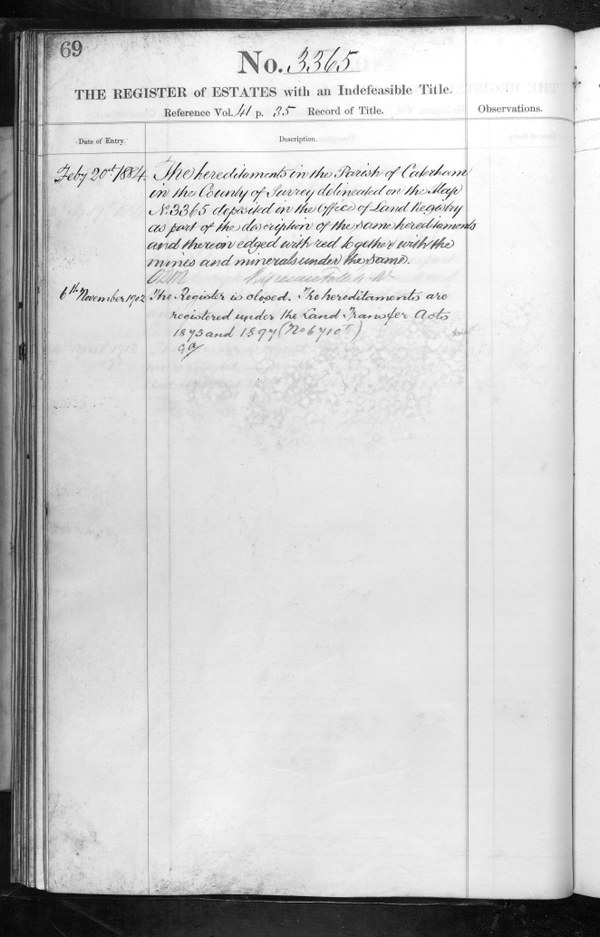 69
No. 3365
THE REGISTER of ESTATES with an Indefeasible Title.
Reference Vol. 41 p. 35 Record of Title.
Observations.
Date of Entry.
Description.
Feby 20th 1884.
The hereditaments in the Parish of Caterham
in the County of Surrey delineated on the Map
No 3365 deposited in the Office of Land Registry
as part of the description of the same hereditaments
and thereon edged with red together with the
mines and minerals under the same.
6th November 1902
The Register is closed. The hereditaments are
registered under the Land Transfer Acts
1875 and 1897 (No 6710)